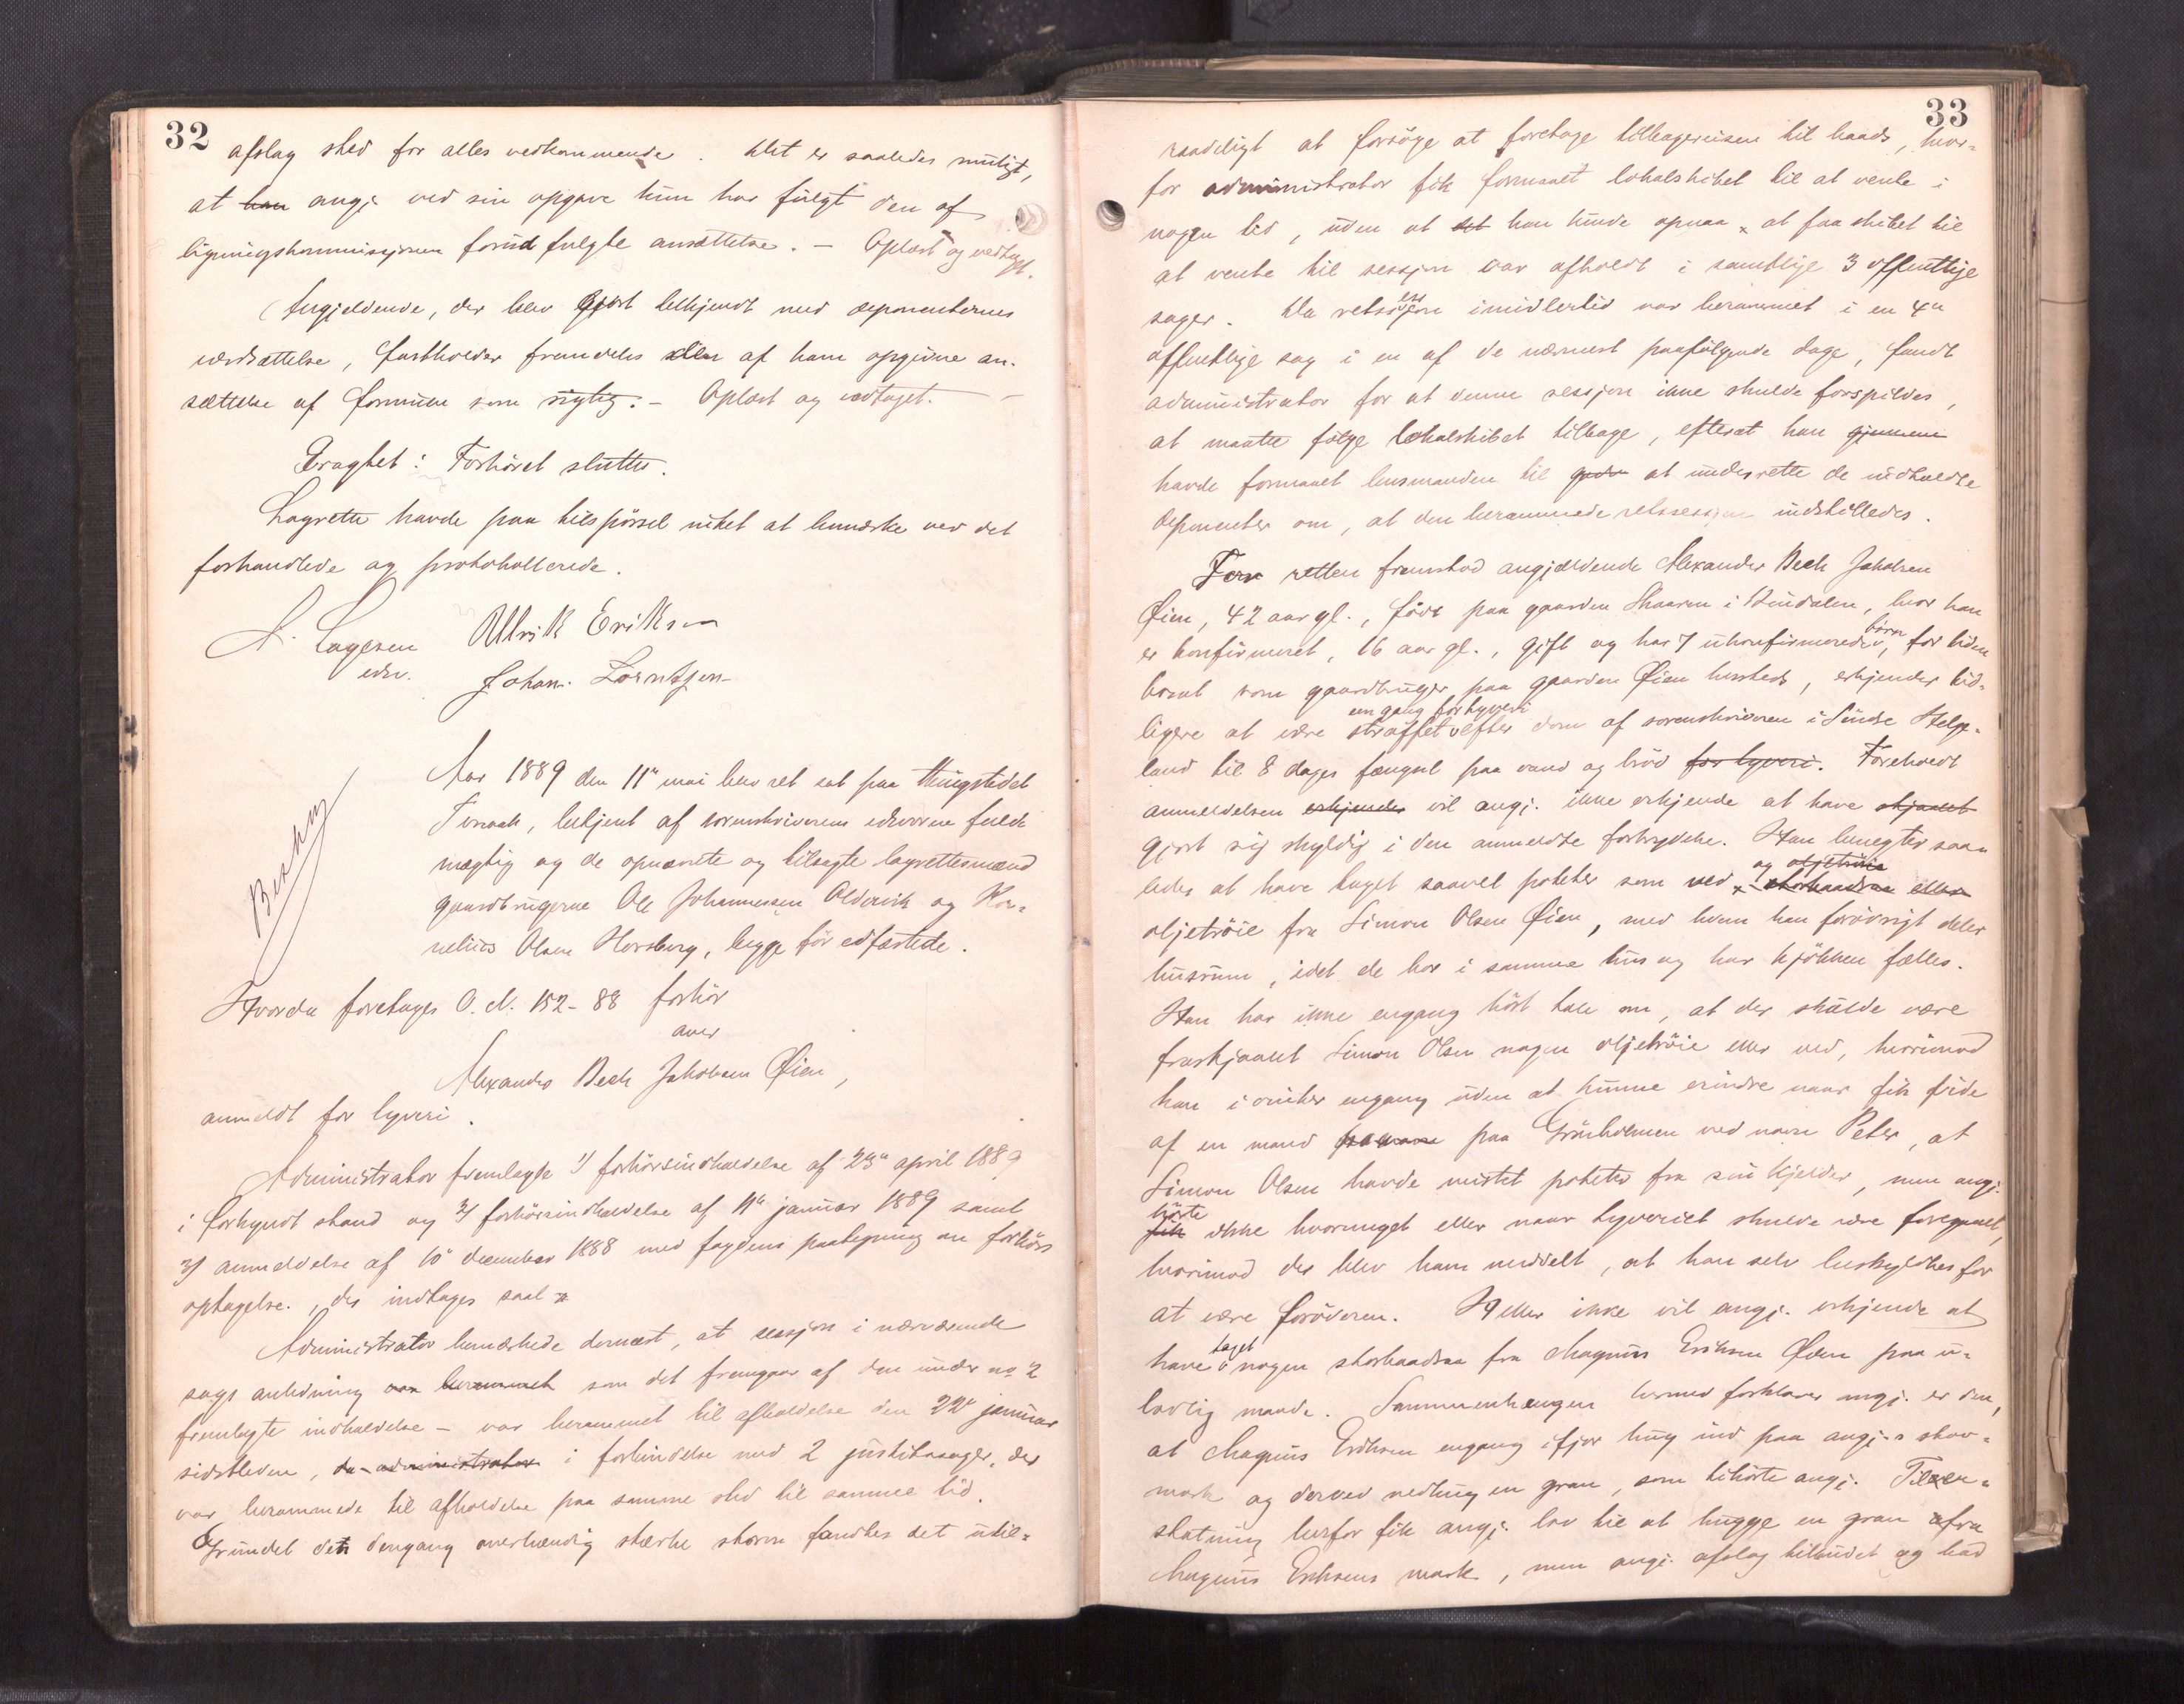 32
afslag sted for alles vedkommende. Det er saaledes muligt,
at han angj. ved sin opgave kun har fulgt den af
ligningskommissjonen forud fulgte ansættelse. – Oplæst og vedtaget.
Angjældende, der blev gjort bekjendt med deponenternes
værdsættelse, fastholder fremdeles den af ham opgivne an-
sættelse af formuen som rigtig. – Oplæst og vedtaget. –
Eragtet: Forhöret sluttes.
Lagrettet havde paa tilspörsel intet at bemærke ved det
forhandlede og protokollerede.
A. Lagesen Ullrik Eriksen
edsv. Johan. Lorntzen
Aar 1889 den 11te mai blev ret sat paa thingstedet
Terraak, betjent af sorenskriverens edsvorne fuld-
mægtig og de opnævnte og tilsagte lagrettesmænd
gaardbrugerne Ole Johannesen Oldervik og Kor-
nelius Olsen Horsberg, begge för edfæstede.
Hvorda foretages O. N. 152-88 forhör
over
Alexander Bech Jakobsen Øien,
anmeldt for tyveri.
Administrator fremlagte 1) forhörsindkaldelse af 23de april 1889
i forkyndt stand og 2) forhörsindkaldelse af 11te januar 1889 samt
3) anmeldelse af 10 december 1888 med fogdens paategning om forhörs
optagelse., der indtages saal
Administrator bemærkede dernæst, at sessjon i nærværende
sags anledning var berammet som det fremgaar af den under no 2
fremlagte indkaldelse – var berammet til afholdelse den 22de januar
sidstleden, da administrator i forbindelse med 2 justitssager, der
var berammede til afholdelse paa samme sted til samme tid.
Grundet den dengang overhændig stærke storm fandtes det util-
33
raadeligt at forsöge at foretage tilbagereisen til baads, hvor-
for administrator fik formaaet lokalskibet til at vente i
nogen tid, uden at det han kunde opnaa at faa skibet til
at vente til sessjon var afholdt i samtlige 3 offentlige
sager. Da retssessjon imidlertid var berammet i en 4de
offentlige sag i en af de nærmest paafölgende dage, fandt
administrator for at denne sessjon ikke skulde forspildes,
at maatte fölge lokalskibet tilbage, efterat han gjennem
havde formaaet lensmanden til at underrette de indkaldte
deponenter om, at den berammede retssessjon indstilledes.
For retten fremstod angjældende Alexander Bech Jakobsen
Øien, 42 aar gl., födt paa gaarden Skaaren i Bindalen, hvor han
er konfirmeret, 16 aar gl., gift og har 7 ukonfirmerede börn, for tiden
bosat som gaardbruger paa gaarden Øien hersteds, erkjender tid-
ligere at være straffet en gang for tyveri efter dom af sorenskriveren i Söndre Helge-
land til 8 dages fængsel paa vand og bröd for tyveri. Foreholdt
anmeldelsen erkjender vil angj. ikke erkjende at have stjaalet
gjort sig skyldig i den anmeldte forbrydelse. Han benegter saa-
ledes at have taget saavel poteter som ved og oljetröie skarbaadsaa eller
oljetröie fra Simon Olsen Øien, med hvem han forövrigt deler
husrum, idet de bor i samme hus og har kjökken fælles.
Han har ikke engang hört tale om, at der skulde være
frastjaalet Simon Olsen nogen oljetröie eller ved, hvorimod
han i vinter engang uden at kunne erindre naar fik vide
af en mand paa Grönholmen ved navn Peter, at
Simon Olsen havde mistet poteter fra sin kjelder, men angj.
fik hörte ikke hvormeget eller naar tyveriet skulde være foregaaet,
hvorimod der blev ham meddelt, at han selv beskyldtes for
at være foröveren. Heller ikke vil angj. erkjende at
have taget nogen skarbaadsaa fra Magnus Eriksen Øien paa u-
lovlig maade. Sammenhængen hermed forklarer angj. er den,
at Magnus Eriksen engang ifjor hug ind paa angj.s skov-
mark og derved nedhug en gran, som tilhörte angj. Til er-
statning herfor fik angj. lov til at hugge en gran fra
Magnus Eriksens mark, men angj. afslog tilbudet og bad